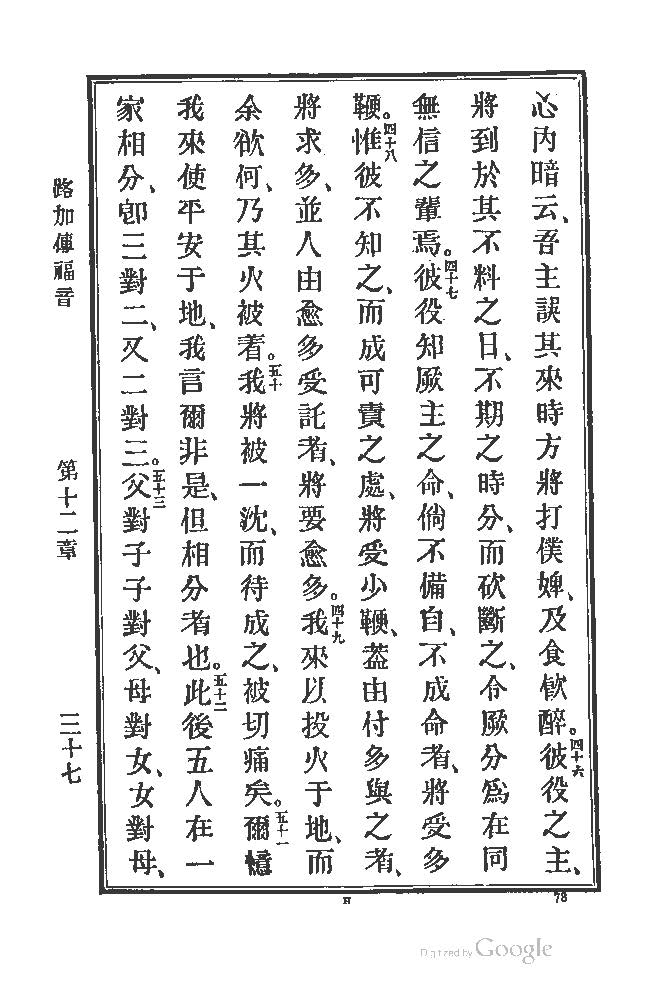 心內暗云、吾主誤其來時方將打僕婢、及食飮醉。四十六彼役之主、
將到於其不料之日、不期之時分、而砍斷之、令厥分爲在同
無信之輩焉。四十七彼役知厥主之命、倘不備自、不成命者、將受多
鞭。四十八惟彼不知之、而成可責之處、將受少鞭、葢由付多與之者、
將求多、並人由愈多受託者、將要愈多。四十九我來以投火于地、而
余欲何、乃其火被着。五十我將被一沈、而待成之、被切痛矣。五十一爾憶
我來使平安于地、我言爾非是、但相分者也。五十二此後五人在一
家相分、卽三對二、又二對三。五十三父對子子對父、母對女、女對母、
路加傳福音 第十二章 三十七
H 73
Digitized by Google